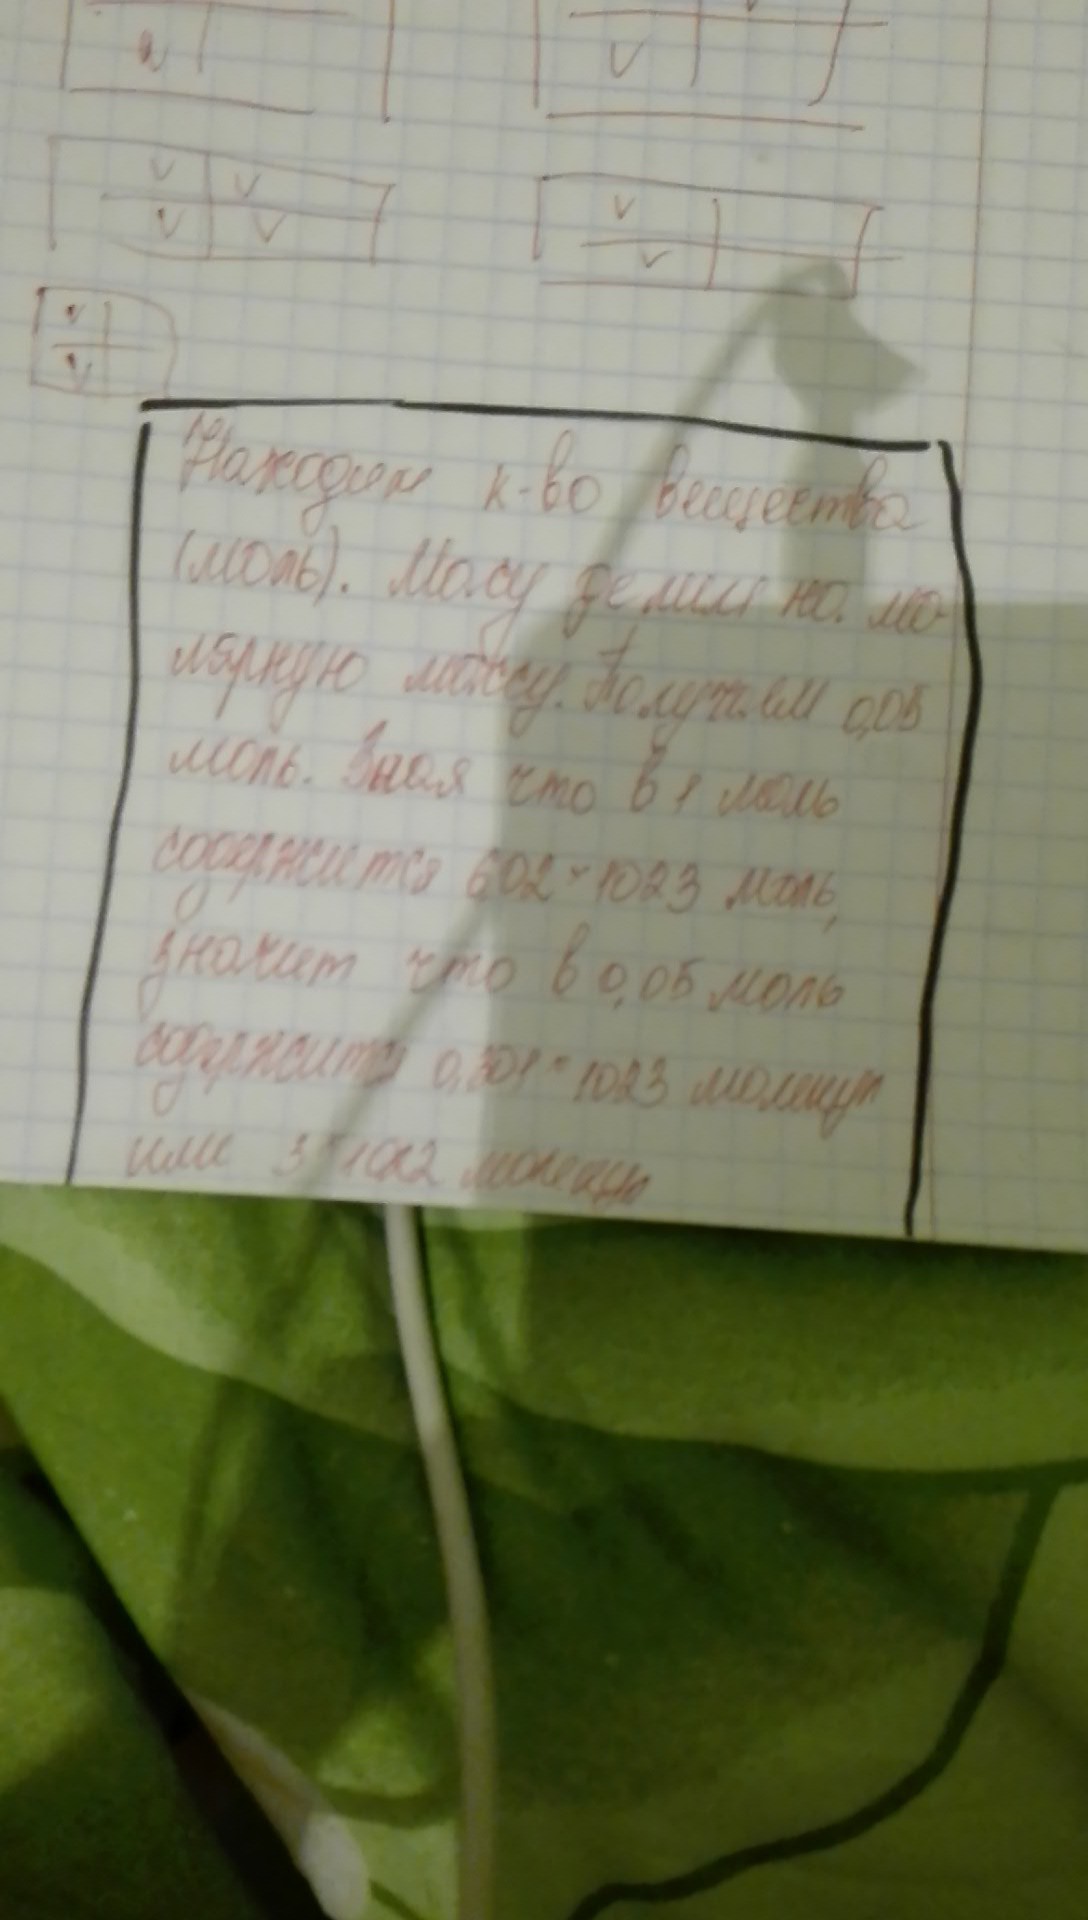 Находим к-во вещества
(моль). Массу делим на мо-
лярную массу. Получаем 0,05
моль. Зная что в 1 моль
содержится 6,02 * 1023 моль,
значит что в 0,05 моль
содержится 0,301 * 1023 молекул
или 3 * 1022 молекул